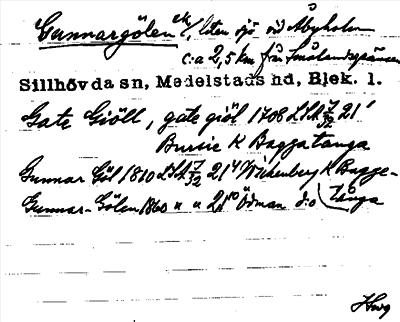 Gunnargölen ek/, liten sjö vid Åbyholm
c:a 2,5 km från Smålandsgränsen
Sillhövda sn, Medelstads hd, Blek. l.
Gate Giöll, gate giöl 1708 LSA 7/32 21'
Bursie K Baggatanga
Gunnar Göl 1810 LSA 7/32 21⁴ Wickenberg K Bagge-
Gunnar-Gölen 1860 " " 21¹⁰ Ödman d:o (tånga